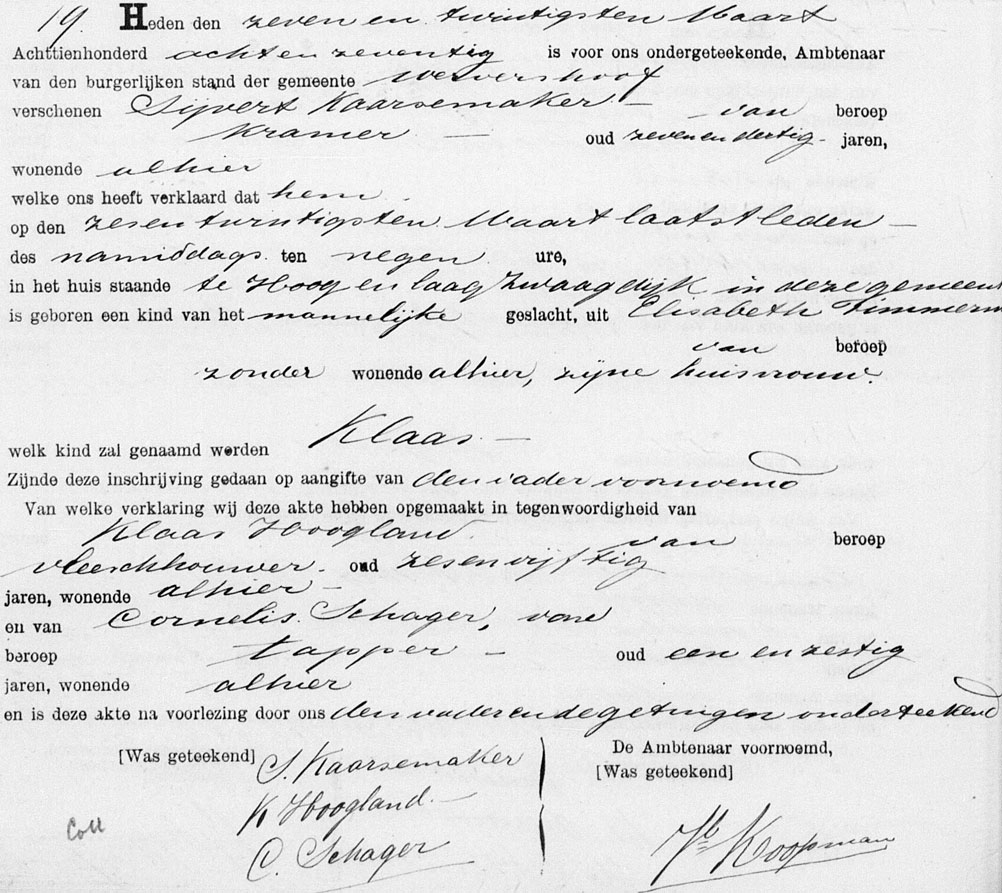 19. Heden den zeven en twintigsten Maart
Achttienhonderd acht en zeventig is voor ons ondergeteekende, Ambtenaar
van den burgerlijken stand der gemeente Wervershoof
verschenen Sijvert Kaarsemaker - van beroep
Kramer - oud zevenendertig - jaren,
wonende alhier
welke ons heeft verklaard dat hem
op den zesentwintigsten Maart laatstleden -
des namiddags ten negen ure,
in het huis staande te Hoog en laag Zwaagdijk in deze gemeent
is geboren een kind van het mannelijke geslacht, uit Elisabeth Timmerm
van beroep
zonder wonende alhier, zijne huisvrouw.
Klaas -
welk kind zal genaamd werden
Zijnde deze inschrijving gedaan op aangifte van den vader voornoemd
Van welke verklaring wij deze akte hebben opgemaakt in tegenwoordigheid van
Klaas Hoogland van beroep
vleeschhouwer - oud zesenvijftig
jaren, wonende alhier -
en van Cornelis Schager, van
beroep tapper - oud een en zestig
jaren, wonende alhier
en is deze akte na voorlezing door ons den vader en de getuigen onderteekend
[Was geteekend] S. Kaarsemaker
K Hoogland. -
C. Schager
De Ambtenaar voornoemd,
[Was geteekend]
Koopman
Coll